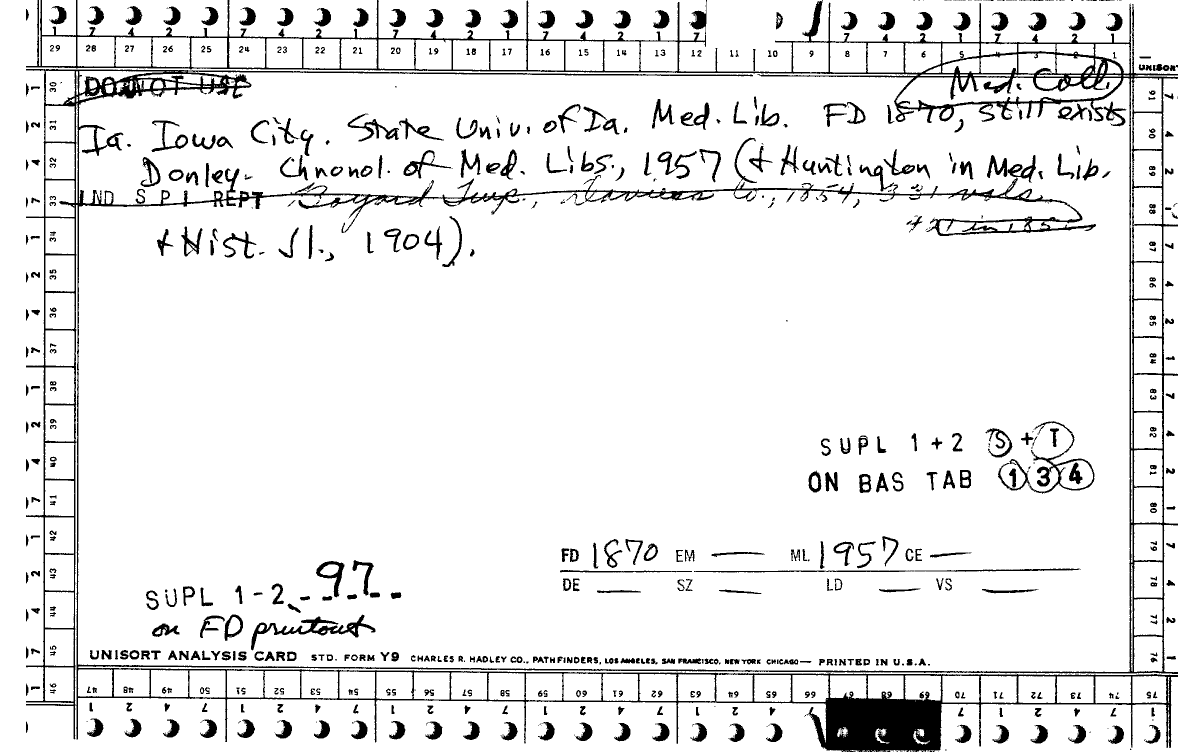 7 4 2 1 7 4 2 1 7 4 2 1 7 4 2 1 7 7 4 2 1 7 4 2 1
29 28 27 26 25 24 23 22 21 20 19 18 17 16 15 14 13 12 11 10 9 8 7 6 5 4 3 2 1
UNISORT
DO NOT USE
Med. Coll.
Ia. Iowa City. State Univ. of Ia. Med. Lib. FD 1870, still exists
Donley. Chnonol. of Med. Libs., 1957 (+ Huntington in Med. Lib.
IND S P I REPT Boyard Twp., Daviess Co., 1854, 331 vols.
+ 21 in 185
+ Hist. Jl., 1904).
SUPL 1+2 S + T
ON BAS TAB 1 3 4
FD 1870 EM — ML 1957 CE —
DE — SZ — LD — VS —
SUPL 1-2 97
on FD printout
UNISORT ANALYSIS CARD STD. FORM Y9 CHARLES R. HADLEY CO., PATHFINDERS, LOS ANGELES, SAN FRANCISCO, NEW YORK CHICAGO— PRINTED IN U.S.A.
30 31 32 33 34 35 36 37 38 39 40 41 42 43 44 45 46
91 90 89 88 87 86 85 84 83 82 81 80 79 78 77 76
47 48 49 50 51 52 53 54 55 56 57 58 59 60 61 62 63 64 65 66 67 68 69 70 71 72 73 74 75